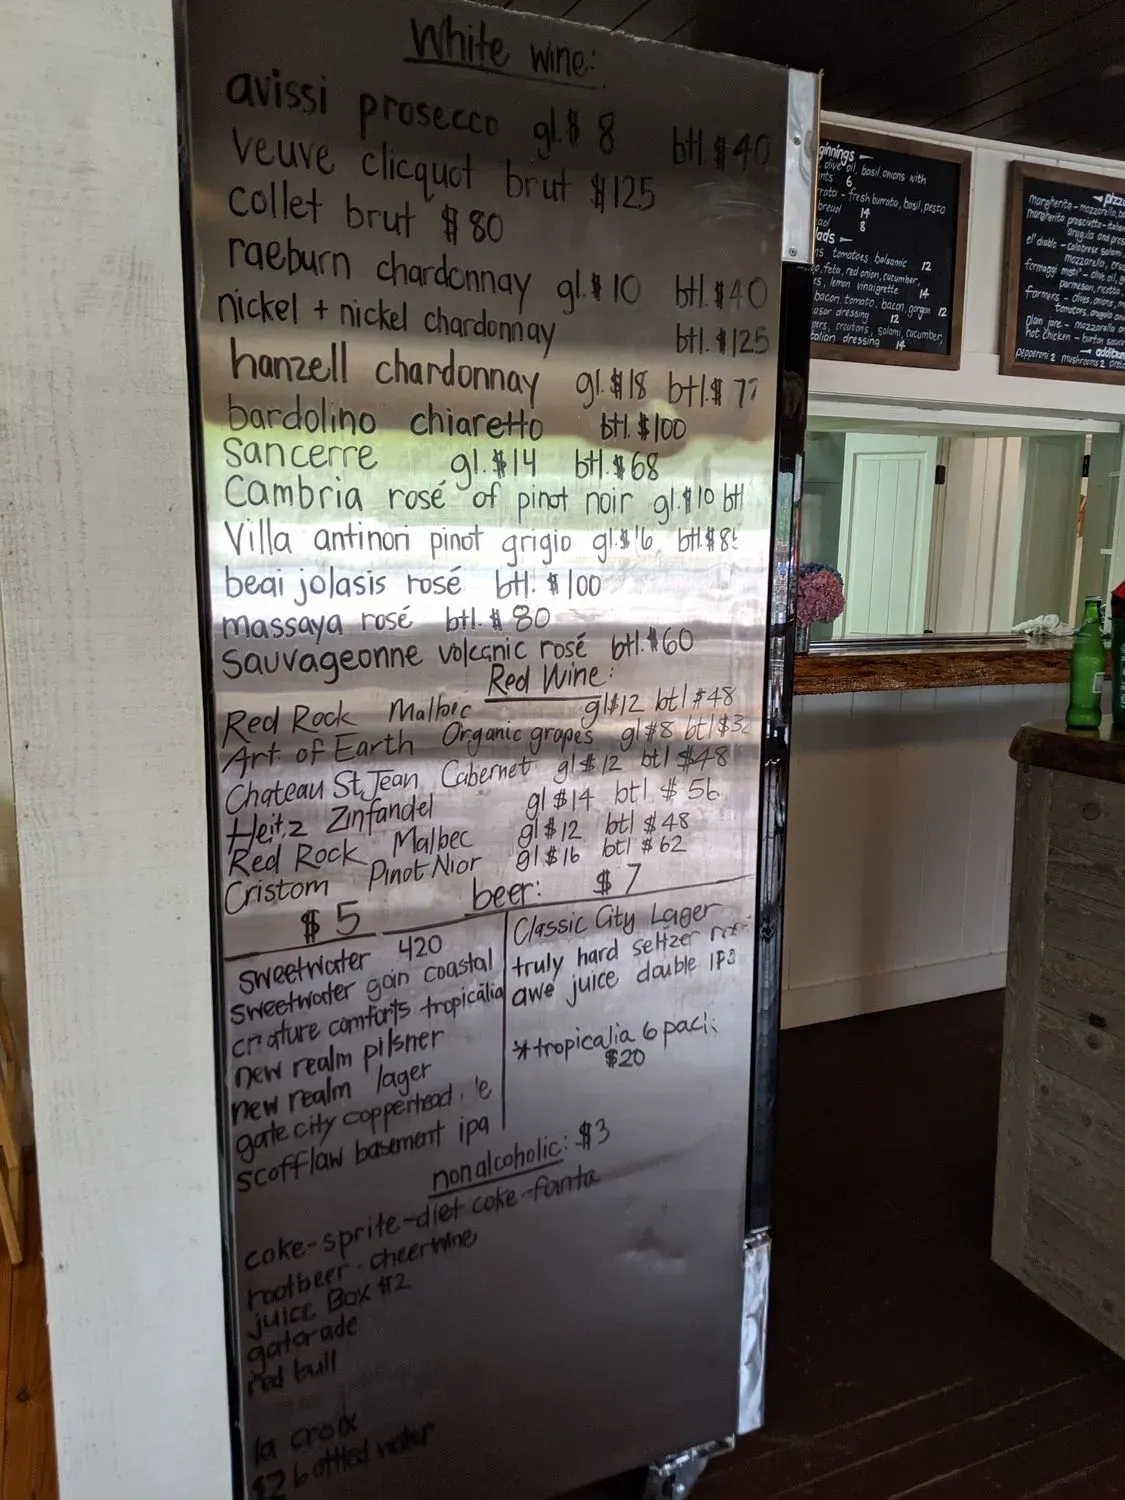 White wine:
avissi prosecco gl.$ 8 btl.$40
veuve clicquot brut $125
collet brut $80
raeburn chardonnay gl.$10 btl.$40
nickel + nickel chardonnay btl.$125
hanzell chardonnay gl.$18 btl.$ 77
bardolino chiaretto btl.$100
Sancerre gl.$14 btl.$68
Cambria rosé of pinot noir gl.$10 btl
Villa antinori pinot grigio btl.
beai jolasis rosé btl. $100
massaya rosé btl.$80
Sauvageonne volcanic rosé btl.$60
Red Wine:
Red Rock Malbec gl$12 btl$48
Art of Earth Organic grapes gl$8 btl
Chateau St.Jean Cabernet gl$12 btl $48
Heitz Zinfandel gl$14 btl $56
Red Rock Malbec gl$12 btl $48
Cristom Pinot Nior gl$16 btl $62
beer:
$5
sweetwater 420
sweetwater goin coastal
creature comforts tropicália
new realm pilsner
new realm lager
gate city copperhead
scofflaw basement ipa
$7
Classic City Lager
truly hard seltzer
awe juice double IPA
*tropicalia 6 pack
$20
nonalcoholic: $3
coke-sprite-diet coke-fanta
rootbeer-cheerwine
juice Box $2
gatorade
red bull
la croix
$2 bottled water
ginnings
olive oil, basil, onions with
6
fresh burrata, basil, pesto
bread 14
8
tomatoes, balsamic 12
feta, red onion, cucumber,
lemon vinaigrette 14
bacon, tomato, bacon, gorgon 12
dressing 12
croutons, salami, cucumber,
italian dressing 14
pizza
margherita - mozzarella, ba
margherita prosciutto - italian
arugula and pros
el' diablo - calabrese salami,
mozzarella, crus
formaggi misti - olive oil, g
parmesan, ricotta
farmers - olives, onions, m
tomatoes, arugula and
plain jane - mozzarella an
hot chicken - burton sauce
addition
pepperoni 2 mushrooms 2